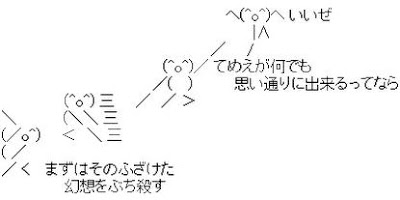 いいぜ
てめえが何でも
思い通りに出来るってなら
まずはそのふざけた
幻想をぶち殺す